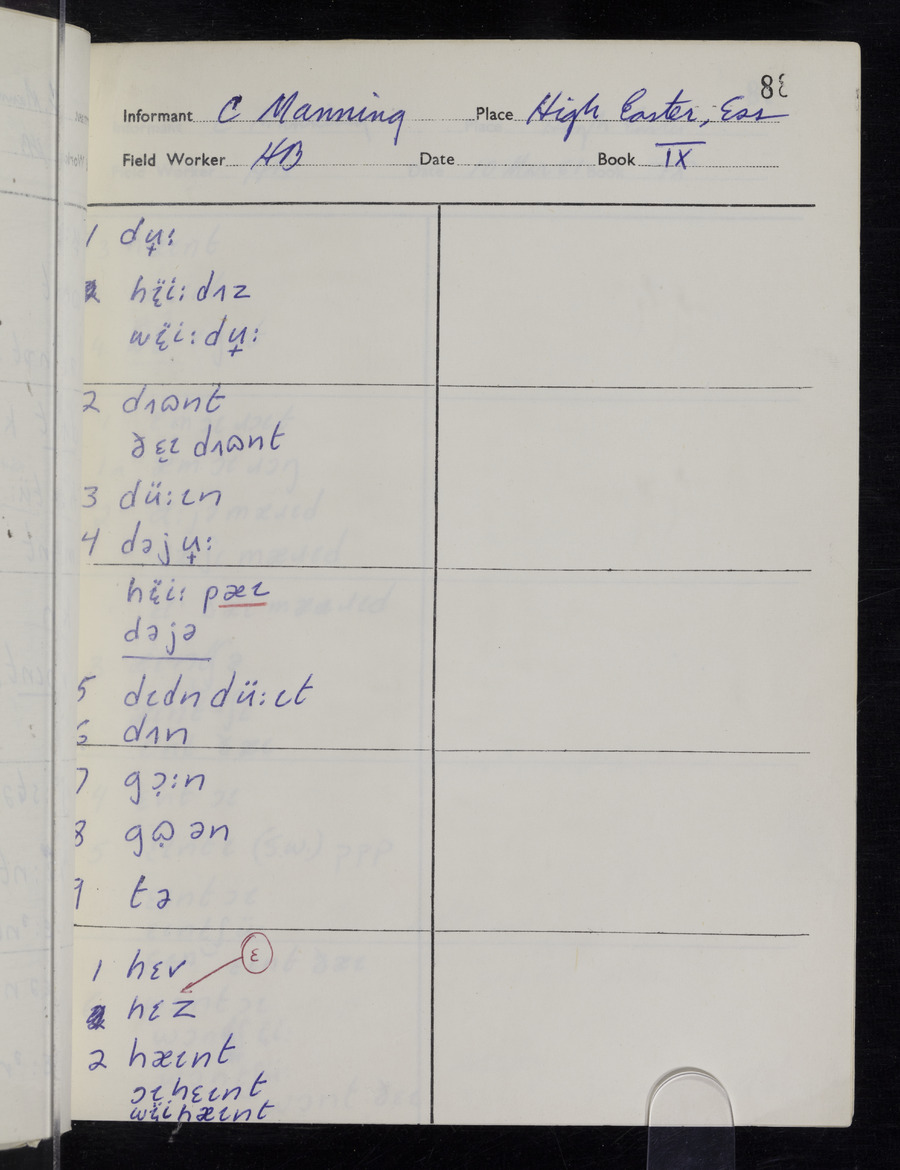 83
Informant C Manning Place High Easter, Ess
Field Worker HB Date Book IX
1 dʉ̟ː
hɛ̈̈iː dʌz
wɛ̈̈iː dʉ̟ː
2 dʌɷnt
ðɛ̣ɩ dʌɷnt
3 düːɩn
4 dəjʉ̟ː
hɛ̈̈iː pæɩ
dəjə
5 dɩdn düːɩt
6 dʌn
7 gɔ̣ːn
8 gɷ̣ ən
9 tə
ɛ
1 hɛv
hɛz
2 hæɩnt
ɔɩ hɛɩnt
wɛ̈̈i hæɩnt